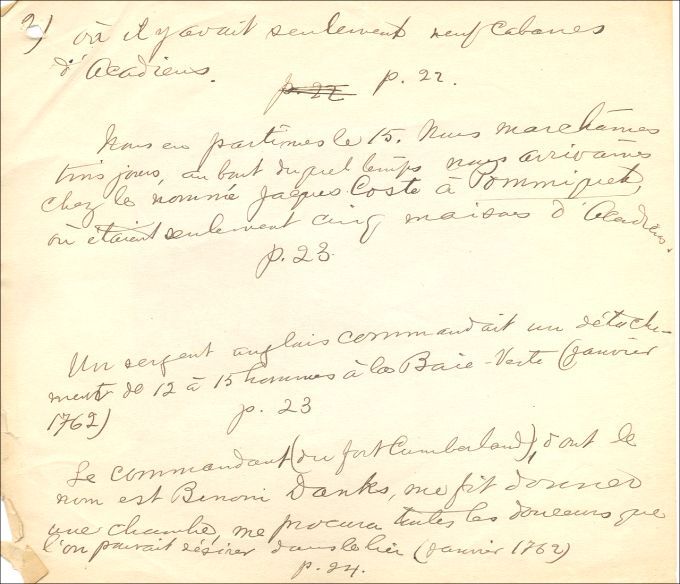 2) où il y avait seulement neuf cabanes
d'Acadiens.
p. 22 p. 22.
Nous en partimes le 15. Nous marchâmes
trois jours, au bout duquel temps nous arrivâmes
chez le nommé Jacques Coste à Pommiquet,
où étaient seulement cinq maisons d'Acadiens.
p. 23
Un sergent anglais commandait un détache-
ment de 12 à 15 hommes à la Baie-Verte (janvier
1762) p. 23
Le commandant (du fort Cumberland), dont le
nom est Benoni Danks, me fit donner
une chambre, me procura toutes les douceurs que
l'on pouvait désirer dans le lieu (janvier 1762)
p. 24.